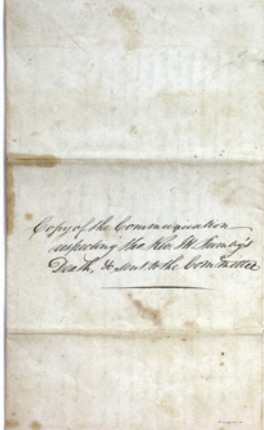 Copy of the Communication
respecting the Rev. W
Death, & sent to the Committee